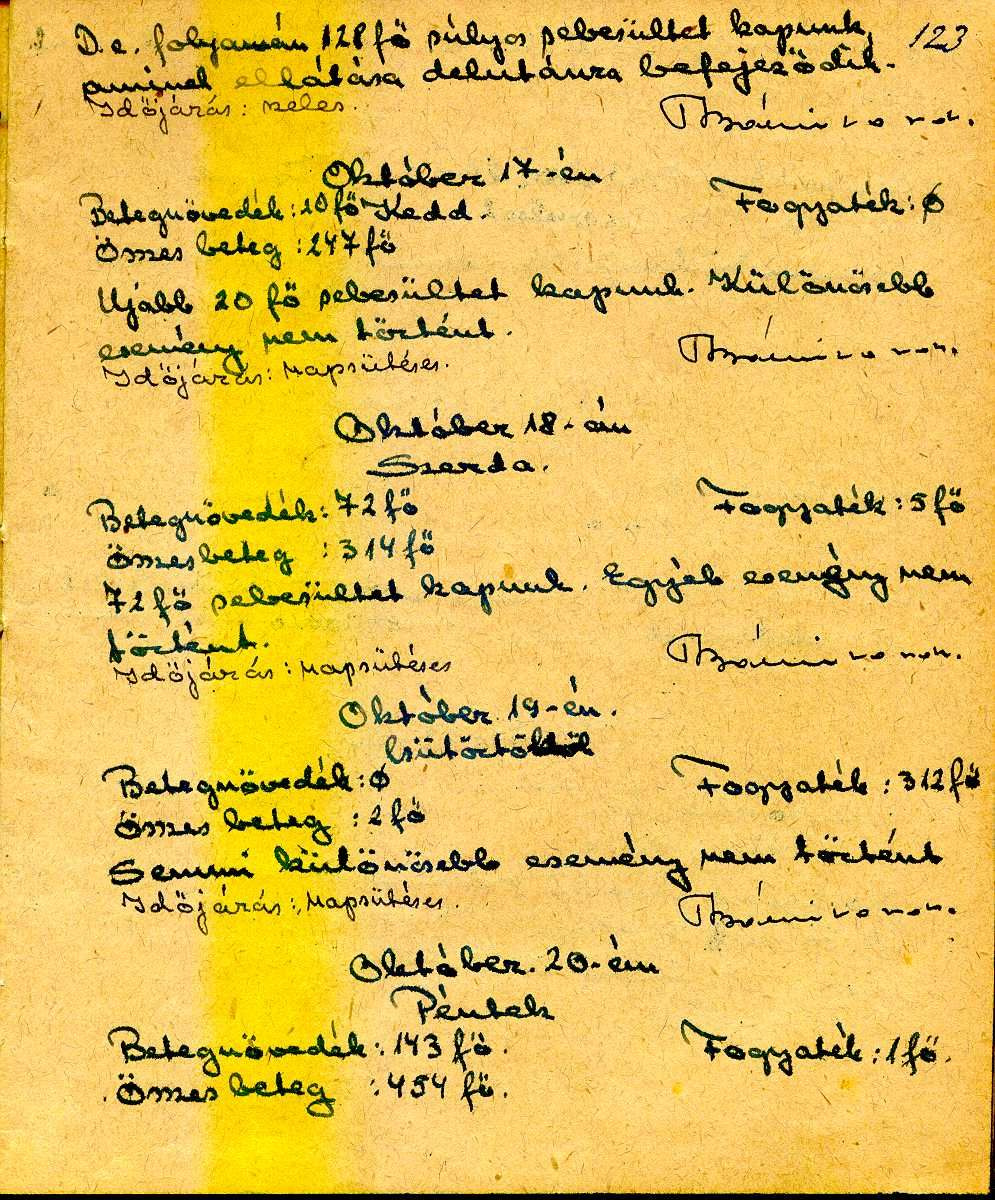 123
D.e. folyamán 128 fő súlyos sebesültet kapunk,
aminek ellátása délutánra befejeződik.
Időjárás: szeles.
Október 17-én
Betegnövedék: 10 fő Kedd. Fogyaték: Ø
Összes beteg : 247 fő
Ujabb 20 fő sebesültet kapunk. Különösebb
esemény nem történt.
Időjárás: Napsütéses.
Október 18-án
Szerda.
Betegnövedék: 72 fő Fogyaték: 5 fő
Összes beteg : 314 fő
72 fő sebesültet kapunk. Egyéb esemény nem
történt.
Időjárás: Napsütéses
Október 19-én.
Csütörtök
Betegnövedék: Ø Fogyaték: 312 fő
Összes beteg : 2 fő
Semmi különösebb esemény nem történt
Időjárás: Napsütéses.
Október. 20-én
Péntek
Betegnövedék: 143 fő. Fogyaték: 1 fő.
Összes beteg : 454 fő.